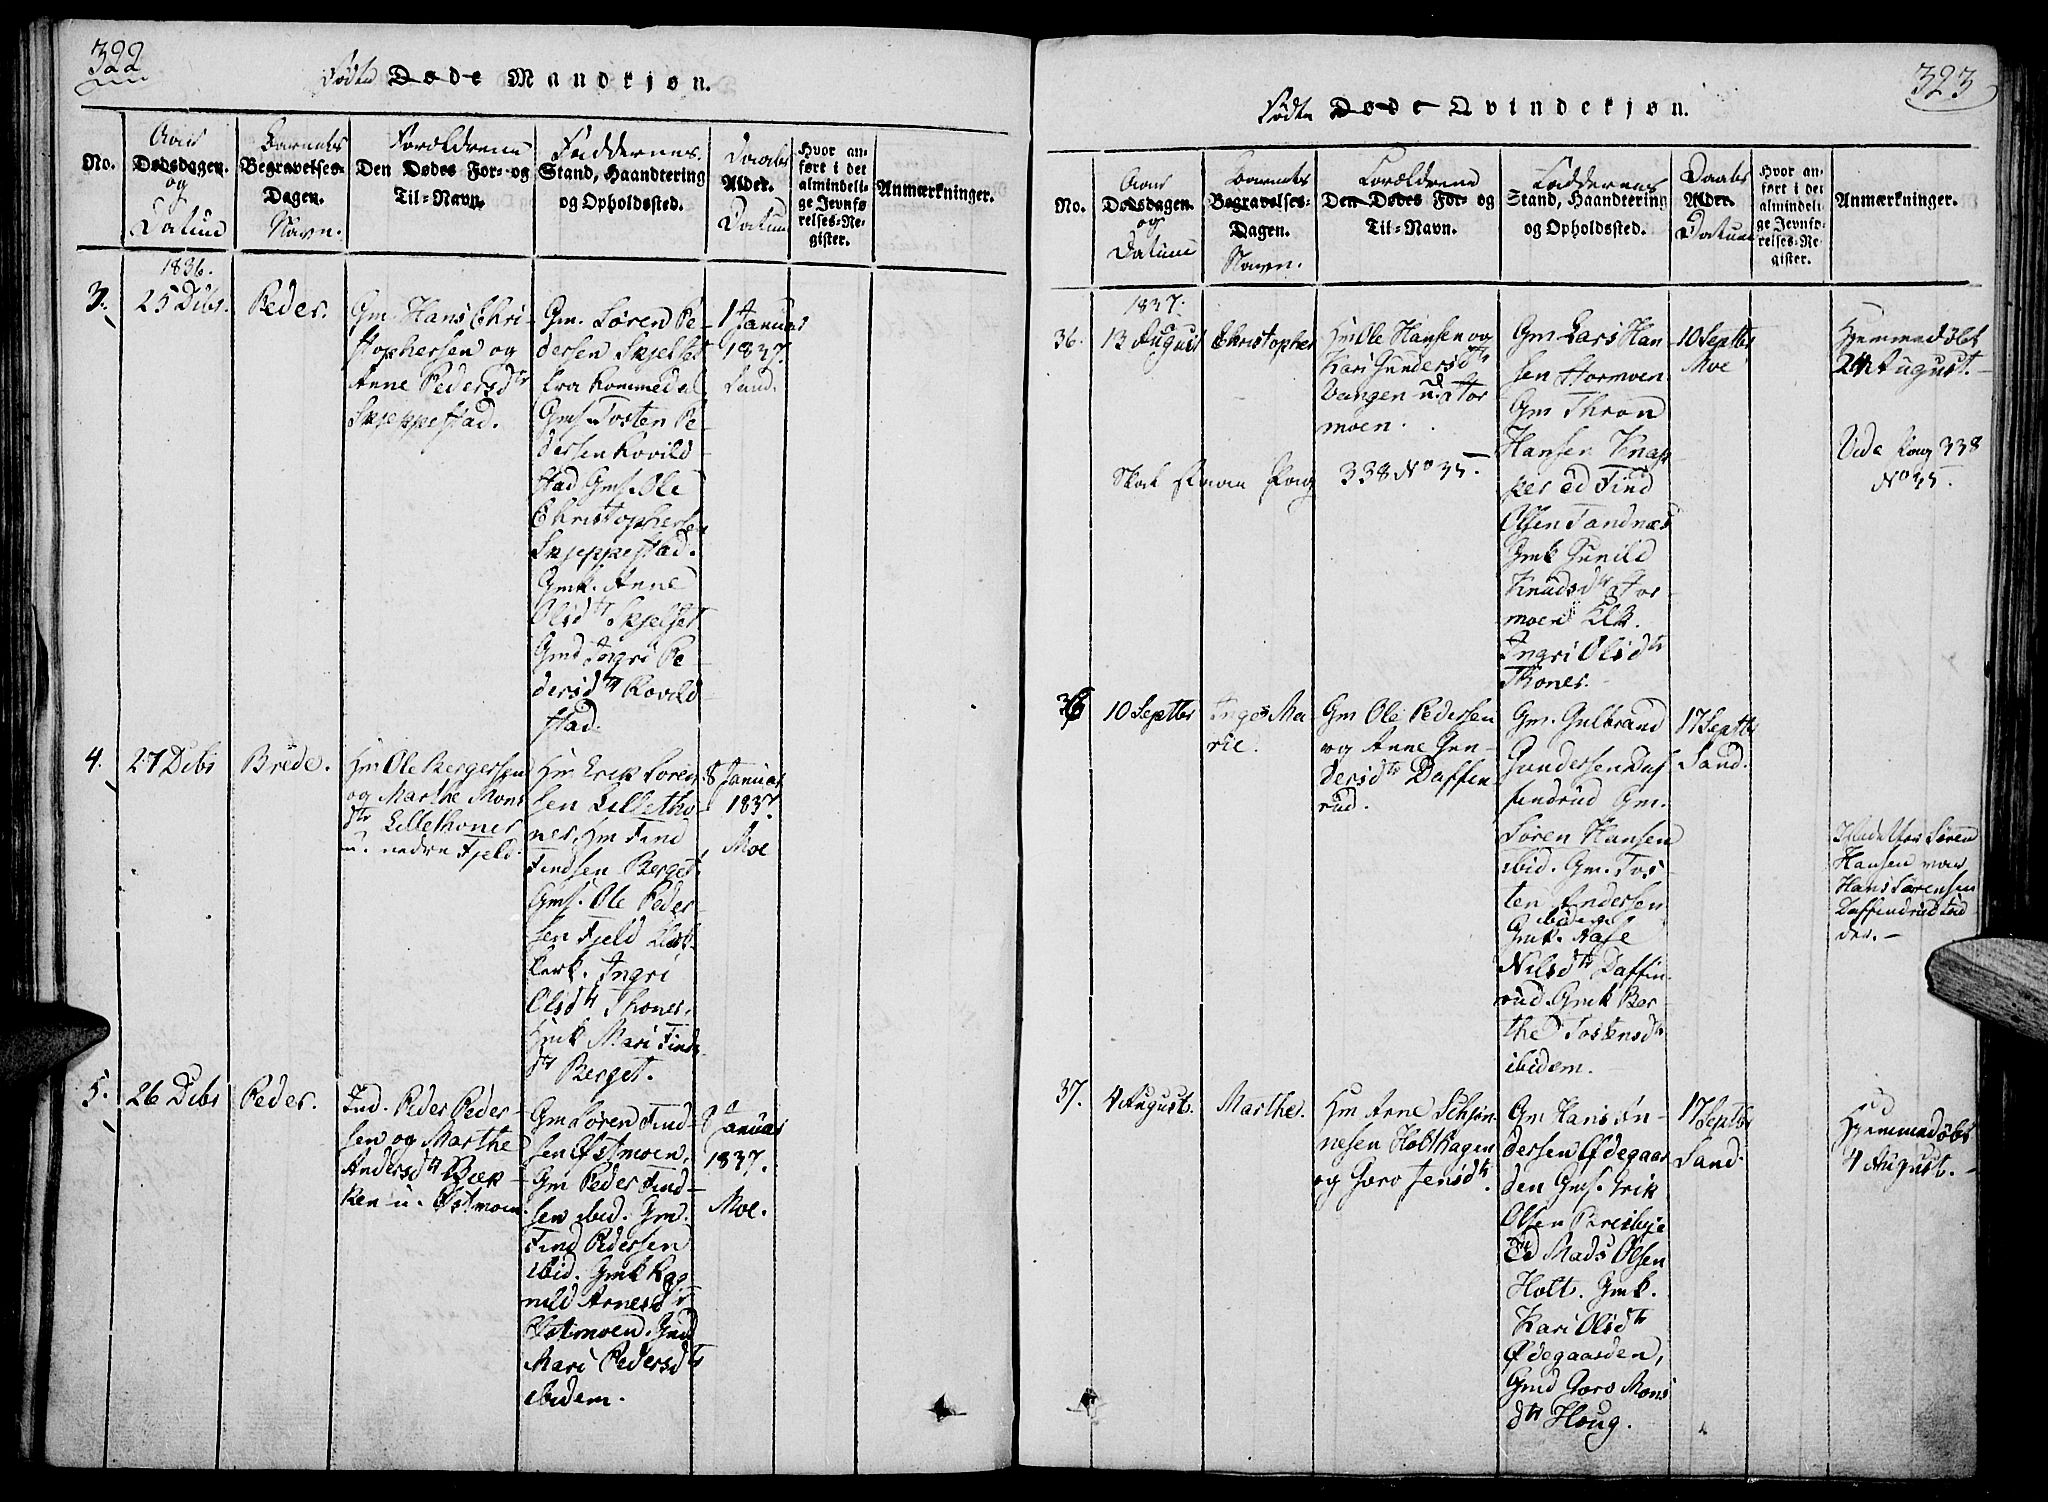 322
Fødte Døde Mandkjøn.
No.
Aars
Dødsdagen.
og
Datum
Barnets
Begravelses-
Dagen.
Navn.
Forældrene
Den Dødes For- og
Til-Navn.
Faddernes
Stand, Haandtering
og Opholdssted.
Daabs
Alder.
Datum
Hvor an-
ført i det
almindeli-
ge Jevnfø-
relses-Re-
gister.
Anmærkninger.
3.
1836.
25 Dcbr.
Peder.
Gm. Hans Chri-
stophersen og
Anne Pedersdtr
Skjeppestad.
Gm. Søren Pe-
dersen Skjelset
Gms. Tosten Pe-
dersen Rovild-
stad Gms. Ole
Christophersen
Skjeppestad.
Gmk. Anne
Olsdtr Skjelset
Gmd Ingri Pe-
dersdtr Rovild
stad.
1 Januar
1837.
Sand.
4.
27 Dcbr
Brede.
Hm Ole Bergersen
og Marthe Mons
dtr Lillethoner
u. nedre Fjeld.
Hm Erik Lored-
sen Lilletho-
ner, Hm Find
Findsen Berget.
Gms. Ole Peder-
sen Fjeld
Ingri
Olsdtr Thoner.
Hmk Mari Finds
dtr Berget.
8 Januar
1837.
Moe
5.
26 Dcbr
Peder.
Ind. Peder Peder-
sen og Marthe
Andersdtr Bæk-
ken u. Østmoen
Gm Søren Find-
sen Østmoen.
Gm Peder Find-
sen ibid. Gm.
Find Pedersen
ibid. Gmk Rag
nild Arnesdtr
Østmoen. Gmd
Mari Pedersdtr
ibidem.
8 Januar
1837.
Moe.
323
Fødte Døde Qvindekjøn.
No.
Aars
Dødsdagen.
og
Datum
Barnets
Begravelses-
Dagen.
Navn.
Forældrene
Den Dødes For- og
Til-Navn.
Faddernes
Stand, Haandtering
og Opholdssted.
Daabs
Alder.
Datum
Hvor an-
ført i det
almindeli-
ge Jevnfø-
relses-Re-
gister.
Anmærkninger.
36.
1837.
13 August
Christopher
Hm Ole Hansen og
Kari Gundersdtr
Vangen u. Stor
moen.
Gm Lars Han-
sen Stormoen.
Gm Thron
Hansen Knap
per Find
Olsen Sandnæs
Gmk Gunild
Knudsdtr Stor
moen
Ingri Olsdtr
Thoner.
10 Septbr
Moe
Hjemmedøbt
24 August.
Skal staae Pag 338 No 35.
Vide Pag 338
No 35.
36
10 Septbr
Inger Ma
rie.
Gm Ole Pedersen
og Anne Gun-
dersdtr Daffin-
rud.
Gm. Gulbrand
Gundersen Daf
findrud Gm.
Søren Hansen
ibid. Gm. Tos
ten Andersen
ibidem
Gmk. Aase
Nilsdtr Daffin
rud. Gmk Ber-
the Tostensdtr
ibidem.
17 Septbr
Sand.
Istedetfor Søren
Hansen var
Hans Sørensen
Daffindrud Fad-
der.
37.
4 August.
Marthe.
Hm Arne Schjin-
nesen Holthagen
og Goro Jensdtr
Gm Hans An-
dersen Ødegaar
den Gms. Erik
Olsen Presbye
Mads Olsen
Holt. Gmk.
Kari Olsdtr
Ødegaarden,
Gmd Goro Mons
dtr Houg.
17 Septbr
Sand.
Hjemmedøbt
4 August.